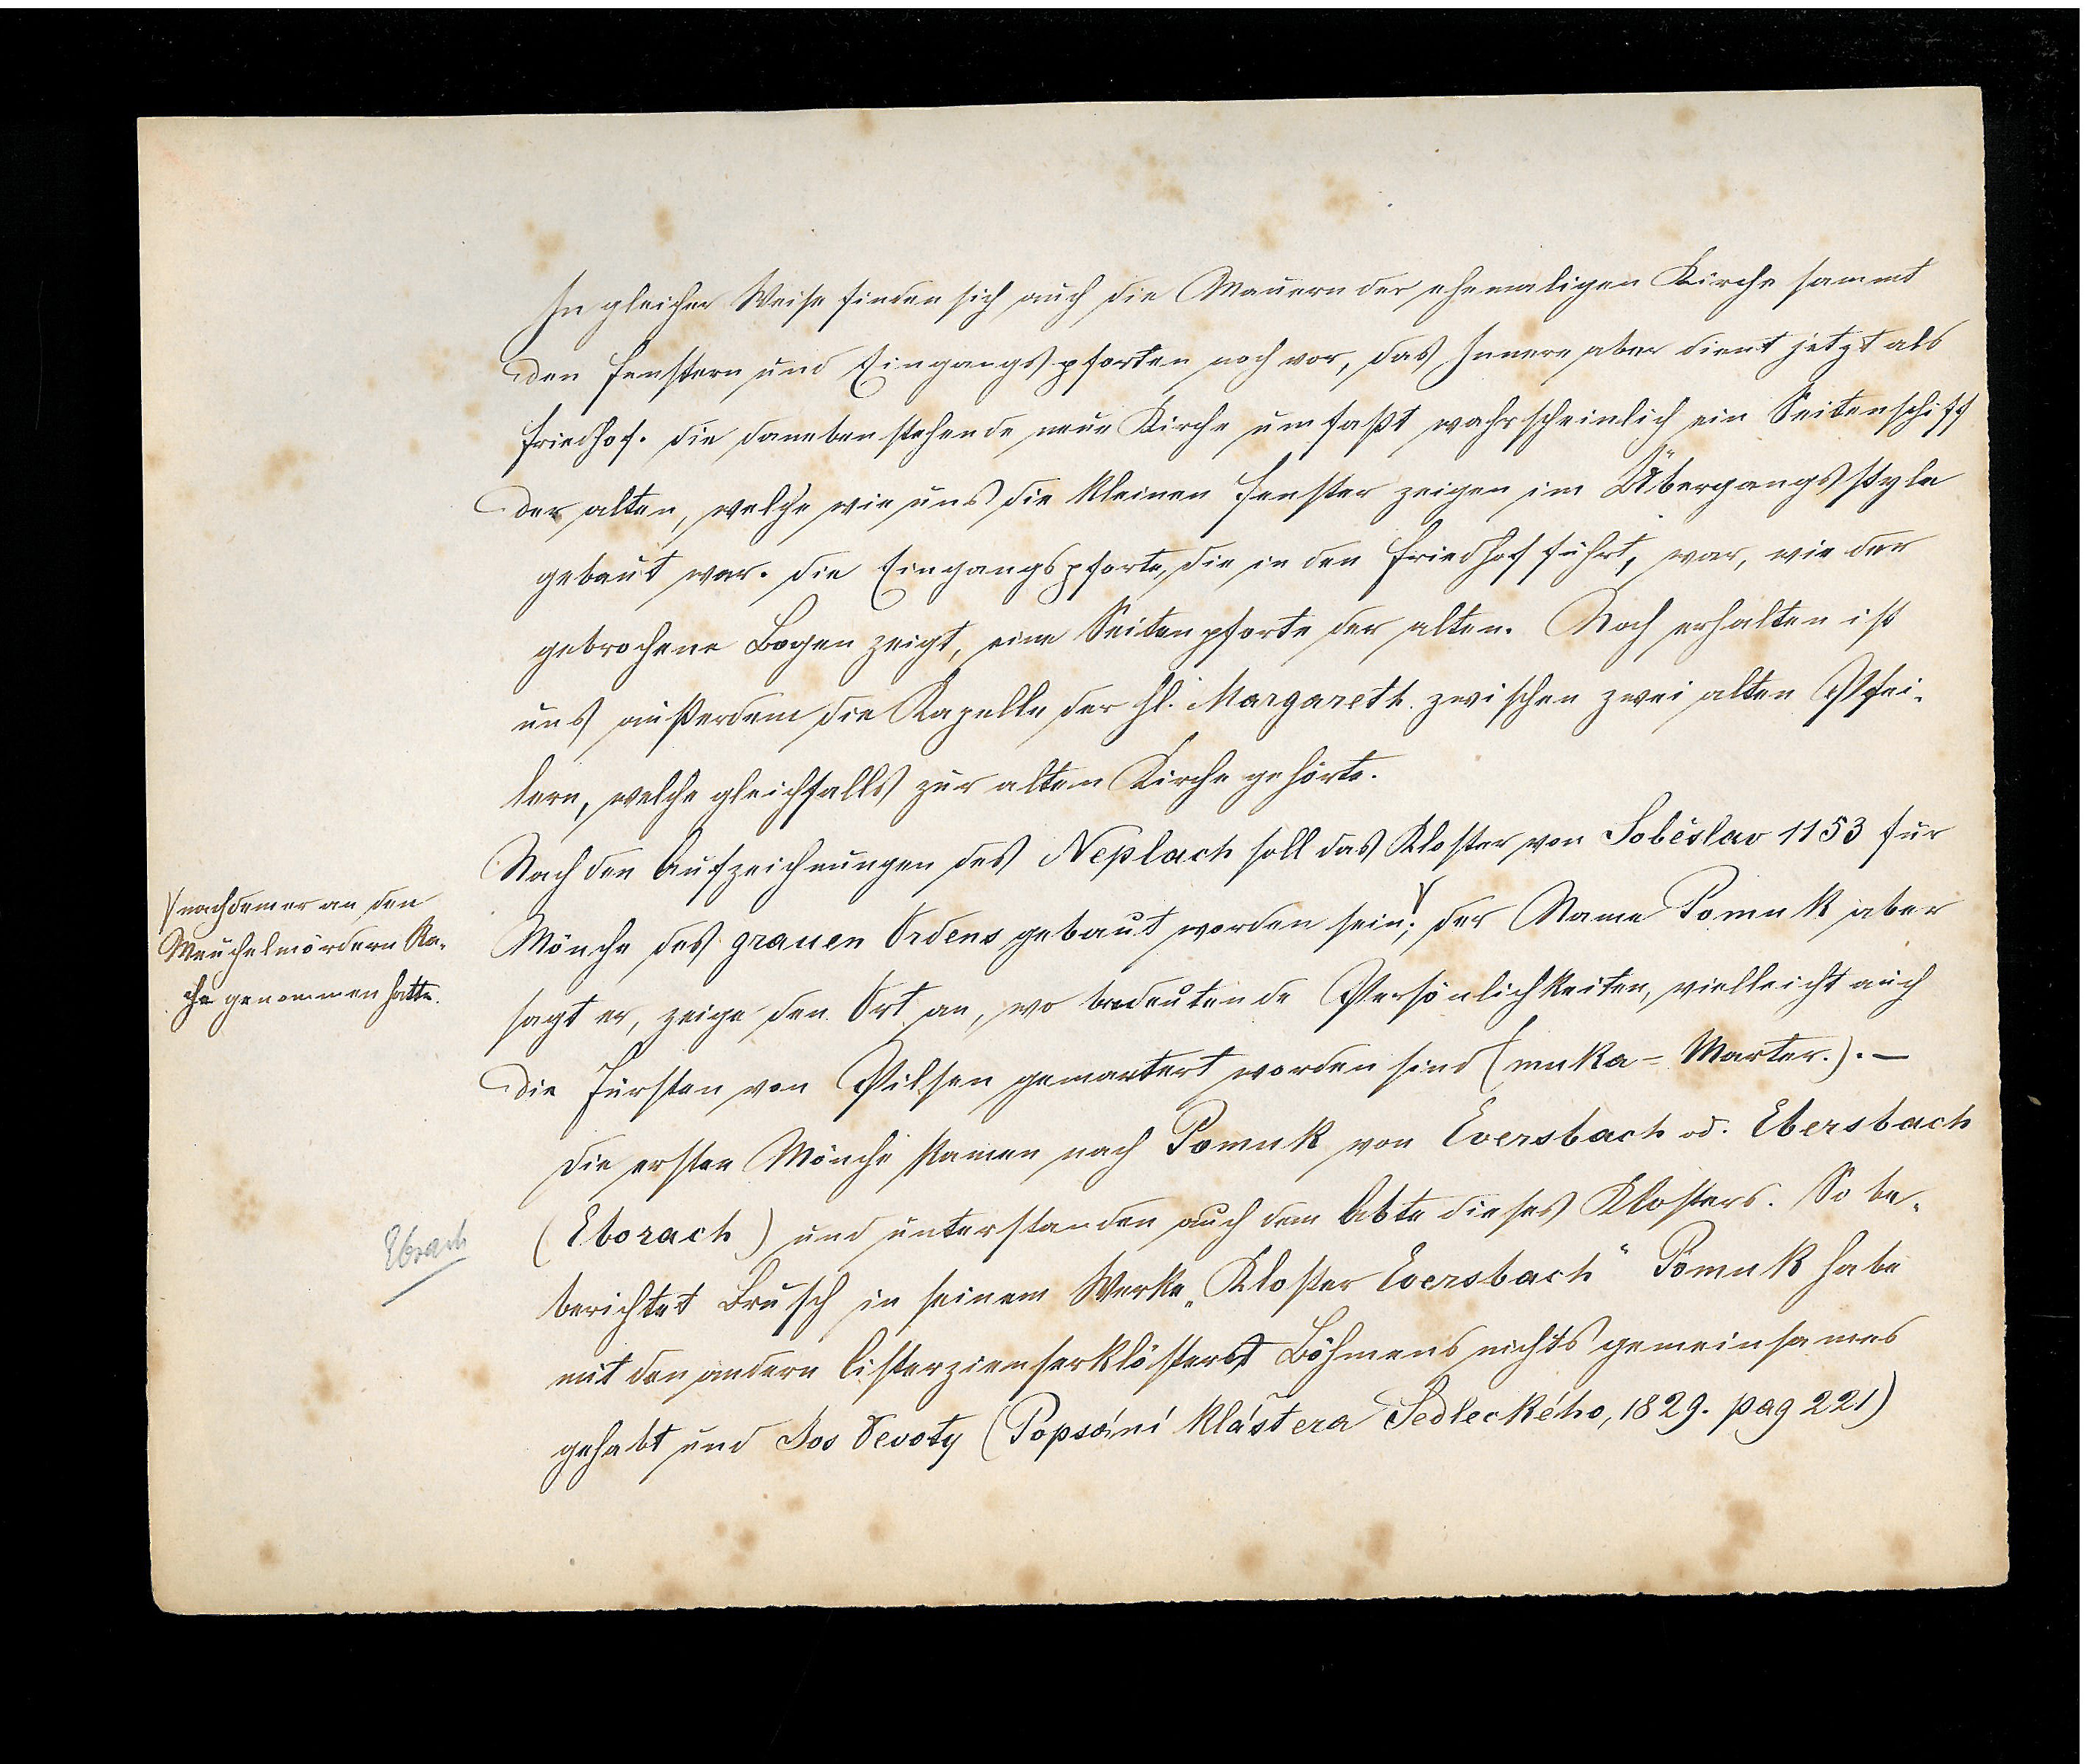 In gleicher Weise finden sich auch die Mauern der ehemaligen Kirche sammt
den Fenstern und Eingangspforten noch vor, das Innere aber dient jetzt als
Friedhof. Die danebenstehende neue Kirche umfaßt wahrscheinlich ein Seitenschiff
der alten, welche wie uns die kleinen Fenster zeigen im Übergangsstyle
gebaut war. Die Eingangspforte, die in den Friedhof führt, war, wie der
gebrochene Bogen zeigt, eine Seitenpforte der alten. Noch erhalten ist
uns außerdem die Kapelle der hl. Margareth. zwischen zwei alten Pfei-
lern, welche gleichfalls zur alten Kirche gehörte.
Nach den Aufzeichnungen des Neplach soll das Kloster von Soběslav 1153 für
Mönche des grauen Ordens gebaut worden sein; der Name Pomuk aber
sagt er, zeige den Ort an, wo bedeutende Persönlichkeiten, vielleicht auch
die Fürsten von Pilsen gemartert worden sind (muka = Marter.). –
Die ersten Mönche kamen nach Pomuk von Eversbach od. Ebersbach
(Eborach) und unterstanden auch dem Abte dieses Klosters. So be-
berichtet Brusch in seinem Werke „Kloster Eversbach" Pomuk habe
mit den andern Cisterzienserklöstern Böhmens nichts gemeinsames
gehabt und Jos Devoty (Popsání kláštera Sedleckého, 1829. pag 221)
nachdem er an den
Meuchelmördern Ra-
che genommen hatte.
Ebrach